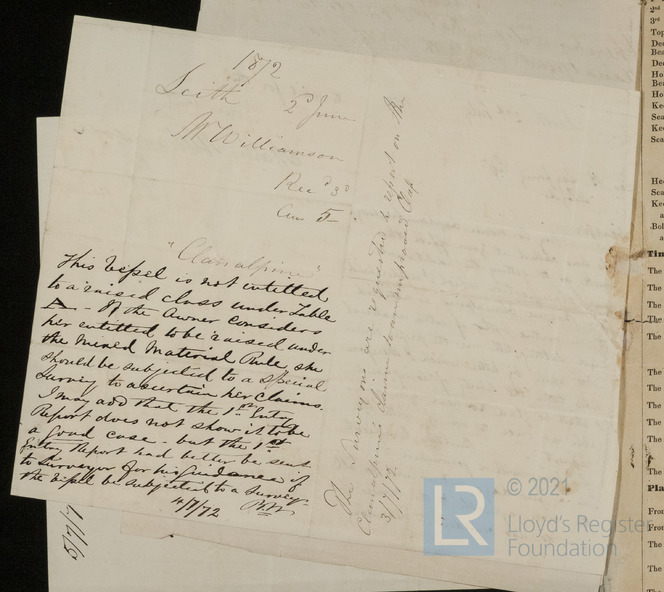 1872
Leith 2d June
Mr Williamson
Recd 3d
Ans 5
"Clanalpine"
This Vessel is not entitled
to a raised class under Table
A. If the Owner considers
her entitled to be raised under
the Mixed Material Rule, she
should be subjected to a special
Survey to ascertain her claims.
I may add that the 1st Entry
Report does not show it to be
a good case - but the 1st
Entry Report had better be sent
to Surveyor for his Guidance if
the Vessel be subjected to a Survey.
4/7/72
The Surveyors are requested to report on the
Clanalpine's claim to an improved Class
3/7/72
5/7/7
2nd
3rd
Top
Dec
Bea
Dec
Ho
Bea
Ho
Kee
Sca
Kee
Sca
He
Sca
Kee
a
Bol
a
Tim
The
The
The
The
The
The
The
The
Pla
From
From
The
The
LR © 2021
Lloyd's Register
Foundation